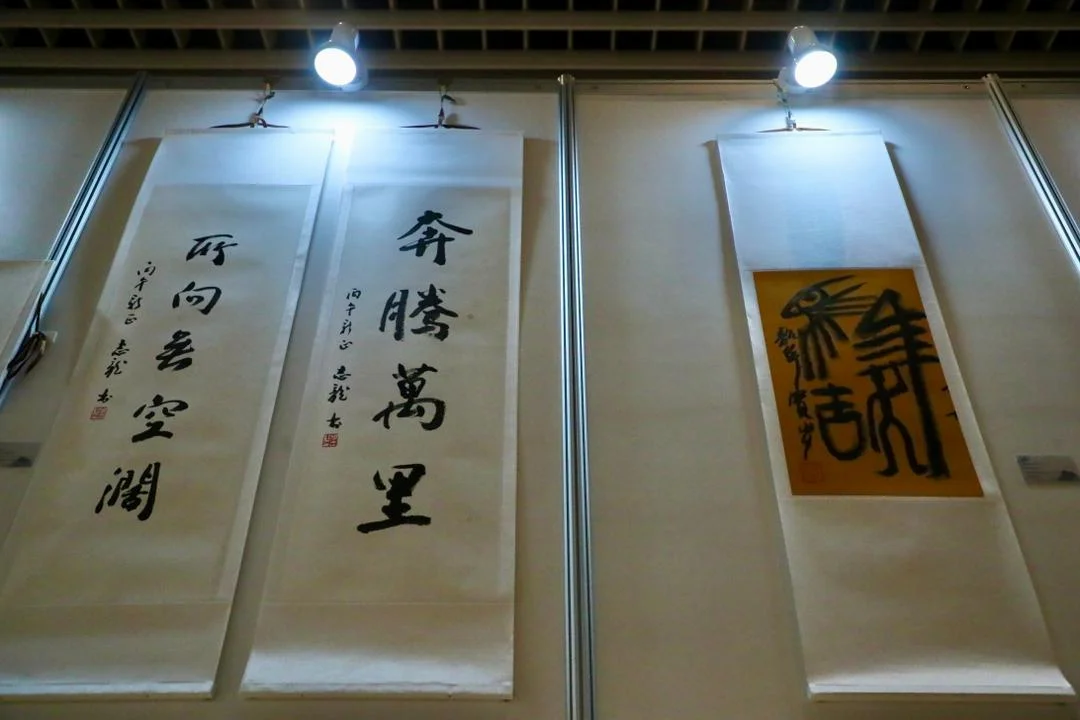 所向無空闊
丙午新正 志龍 書
奔騰萬里
丙午新正 志龍 書
賀岁